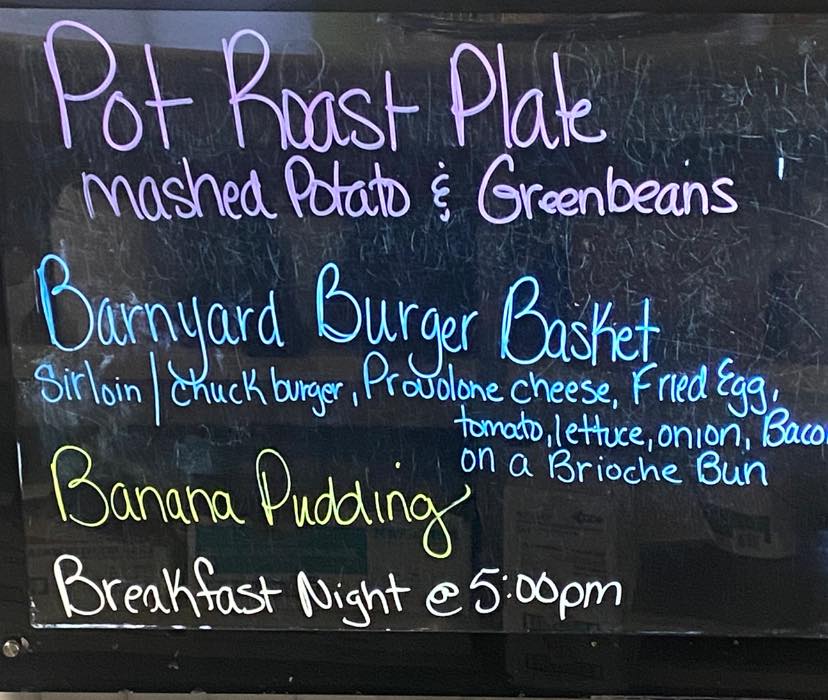 Pot Roast Plate
mashed Potato & Greenbeans
Barnyard Burger Basket
Sirloin / chuck burger, Provolone cheese, Fried Egg,
tomato, lettuce, onion, Baco
on a Brioche Bun
Banana Pudding
Breakfast Night @ 5:00pm